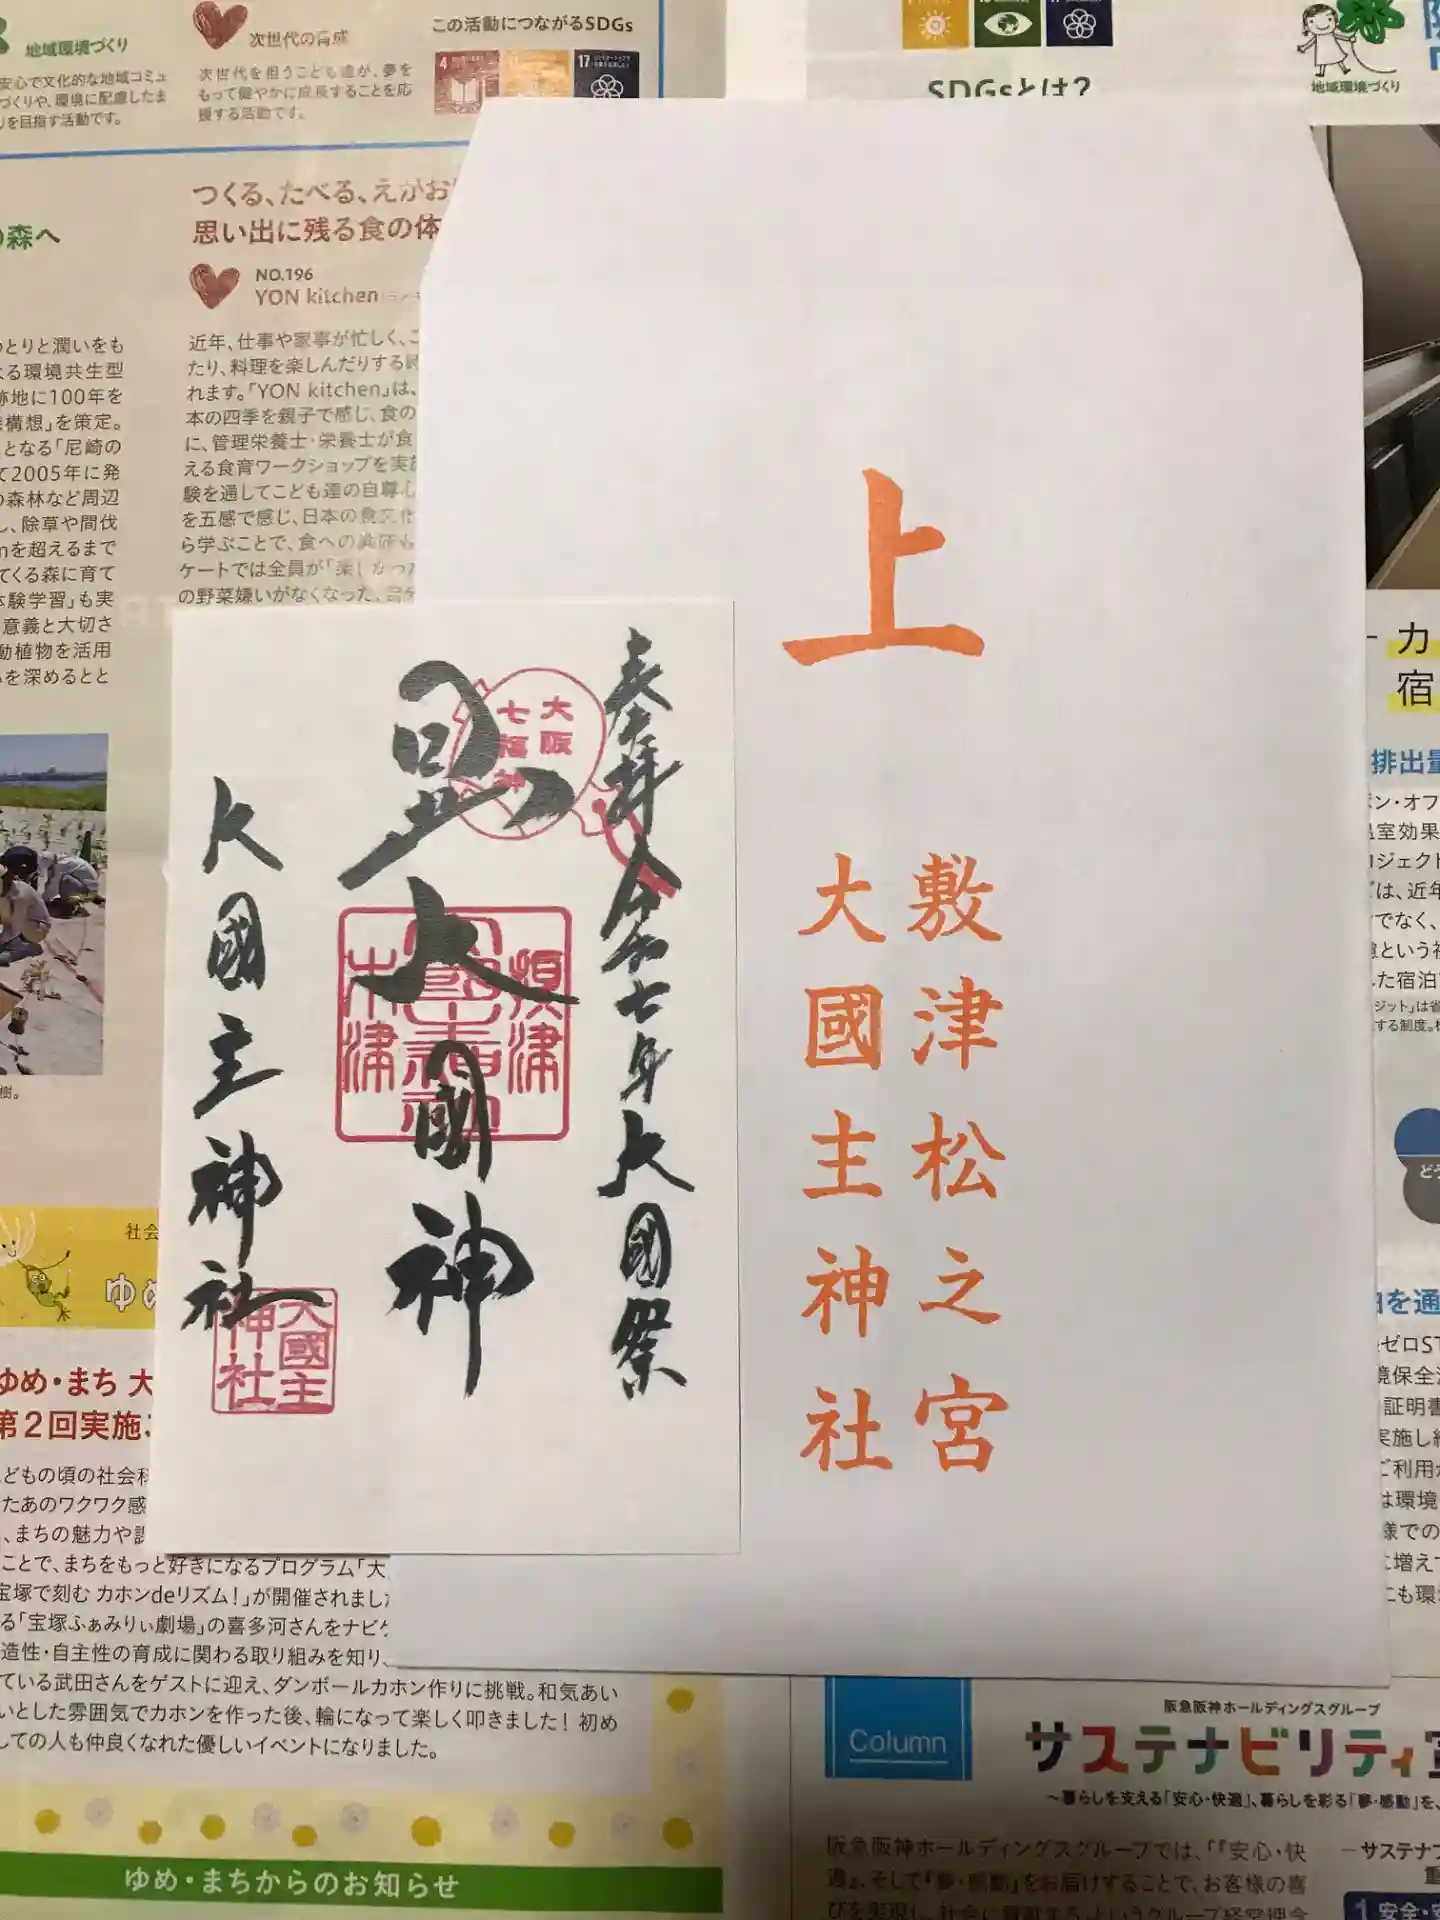 地域環境づくり
安心で文化的な地域コミュ
づくりや、環境に配慮したま
りを目指す活動です。
次世代の育成
次世代を担うこども達が、夢を
もって健やかに成長することを応
援する活動です。
この活動につながるSDGs
4
17
SDGsとは?
地域環境づくり
の森へ
つくる、たべる、えがお
思い出に残る食の体
NO.196
YON kitchen
とりと潤いをも
る環境共生型
跡地に100年を
構想」を策定。
となる「尼崎の
て2005年に発
の森林など周辺
し、除草や間伐
mを超えるまで
てくる森に育て
体験学習」も実
意義と大切さ
動植物を活用
を深めるとと
樹。
近年、仕事や家事が忙しく、こ
たり、料理を楽しんだりする時
れます。「YON kitchen」は、
本の四季を親子で感じ、食の
に、管理栄養士・栄養士が食
える食育ワークショップを実施
験を通してこども達の自尊心
を五感で感じ、日本の食文化
ら学ぶことで、食への興味も
ケートでは全員が「楽しかった
の野菜嫌いがなくなった、自分
上
敷津松之宮
大國主神社
奉拝 令和七年大国祭
大阪
七福神
大國神
敷津
木津
大國主神社
大國主
神社
カ
宿
排出量
ン・オフ
温室効果
ロジェクト
は、近年
でなく、
した宿泊
ジット」は省
する制度。
どう
を通
ゼロST
境保全
証明書
実施し
ご利用
は環境
様での
に増えて
にも環
社会
ゆめ
ゆめ・まち 大
第2回実施
こどもの頃の社会科
たあのワクワク感
、まちの魅力や
ことで、まちをもっと好きになるプログラム「大
宝塚で刻む カホンdeリズム!」が開催されまし
る「宝塚ふぁみりぃ劇場」の喜多河さんをナビゲ
造性・自主性の育成に関わる取り組みを知り、
ている武田さんをゲストに迎え、ダンボールカホン作りに挑戦。和気あい
いとした雰囲気でカホンを作った後、輪になって楽しく叩きました! 初め
ての人も仲良くなれた優しいイベントになりました。
ゆめ・まちからのお知らせ
Column
阪急阪神ホールディングスグループ
サステナビリティ宣
～暮らしを支える「安心・快適」、暮らしを彩る「夢・感動」を、
阪急阪神ホールディングスグループでは、「『安心・快
適』、そして『夢・感動』をお届けすることで、お客様の喜
びを実現し、社会に貢献する」というグループ経営理念
サステナ
重
1 安全・安